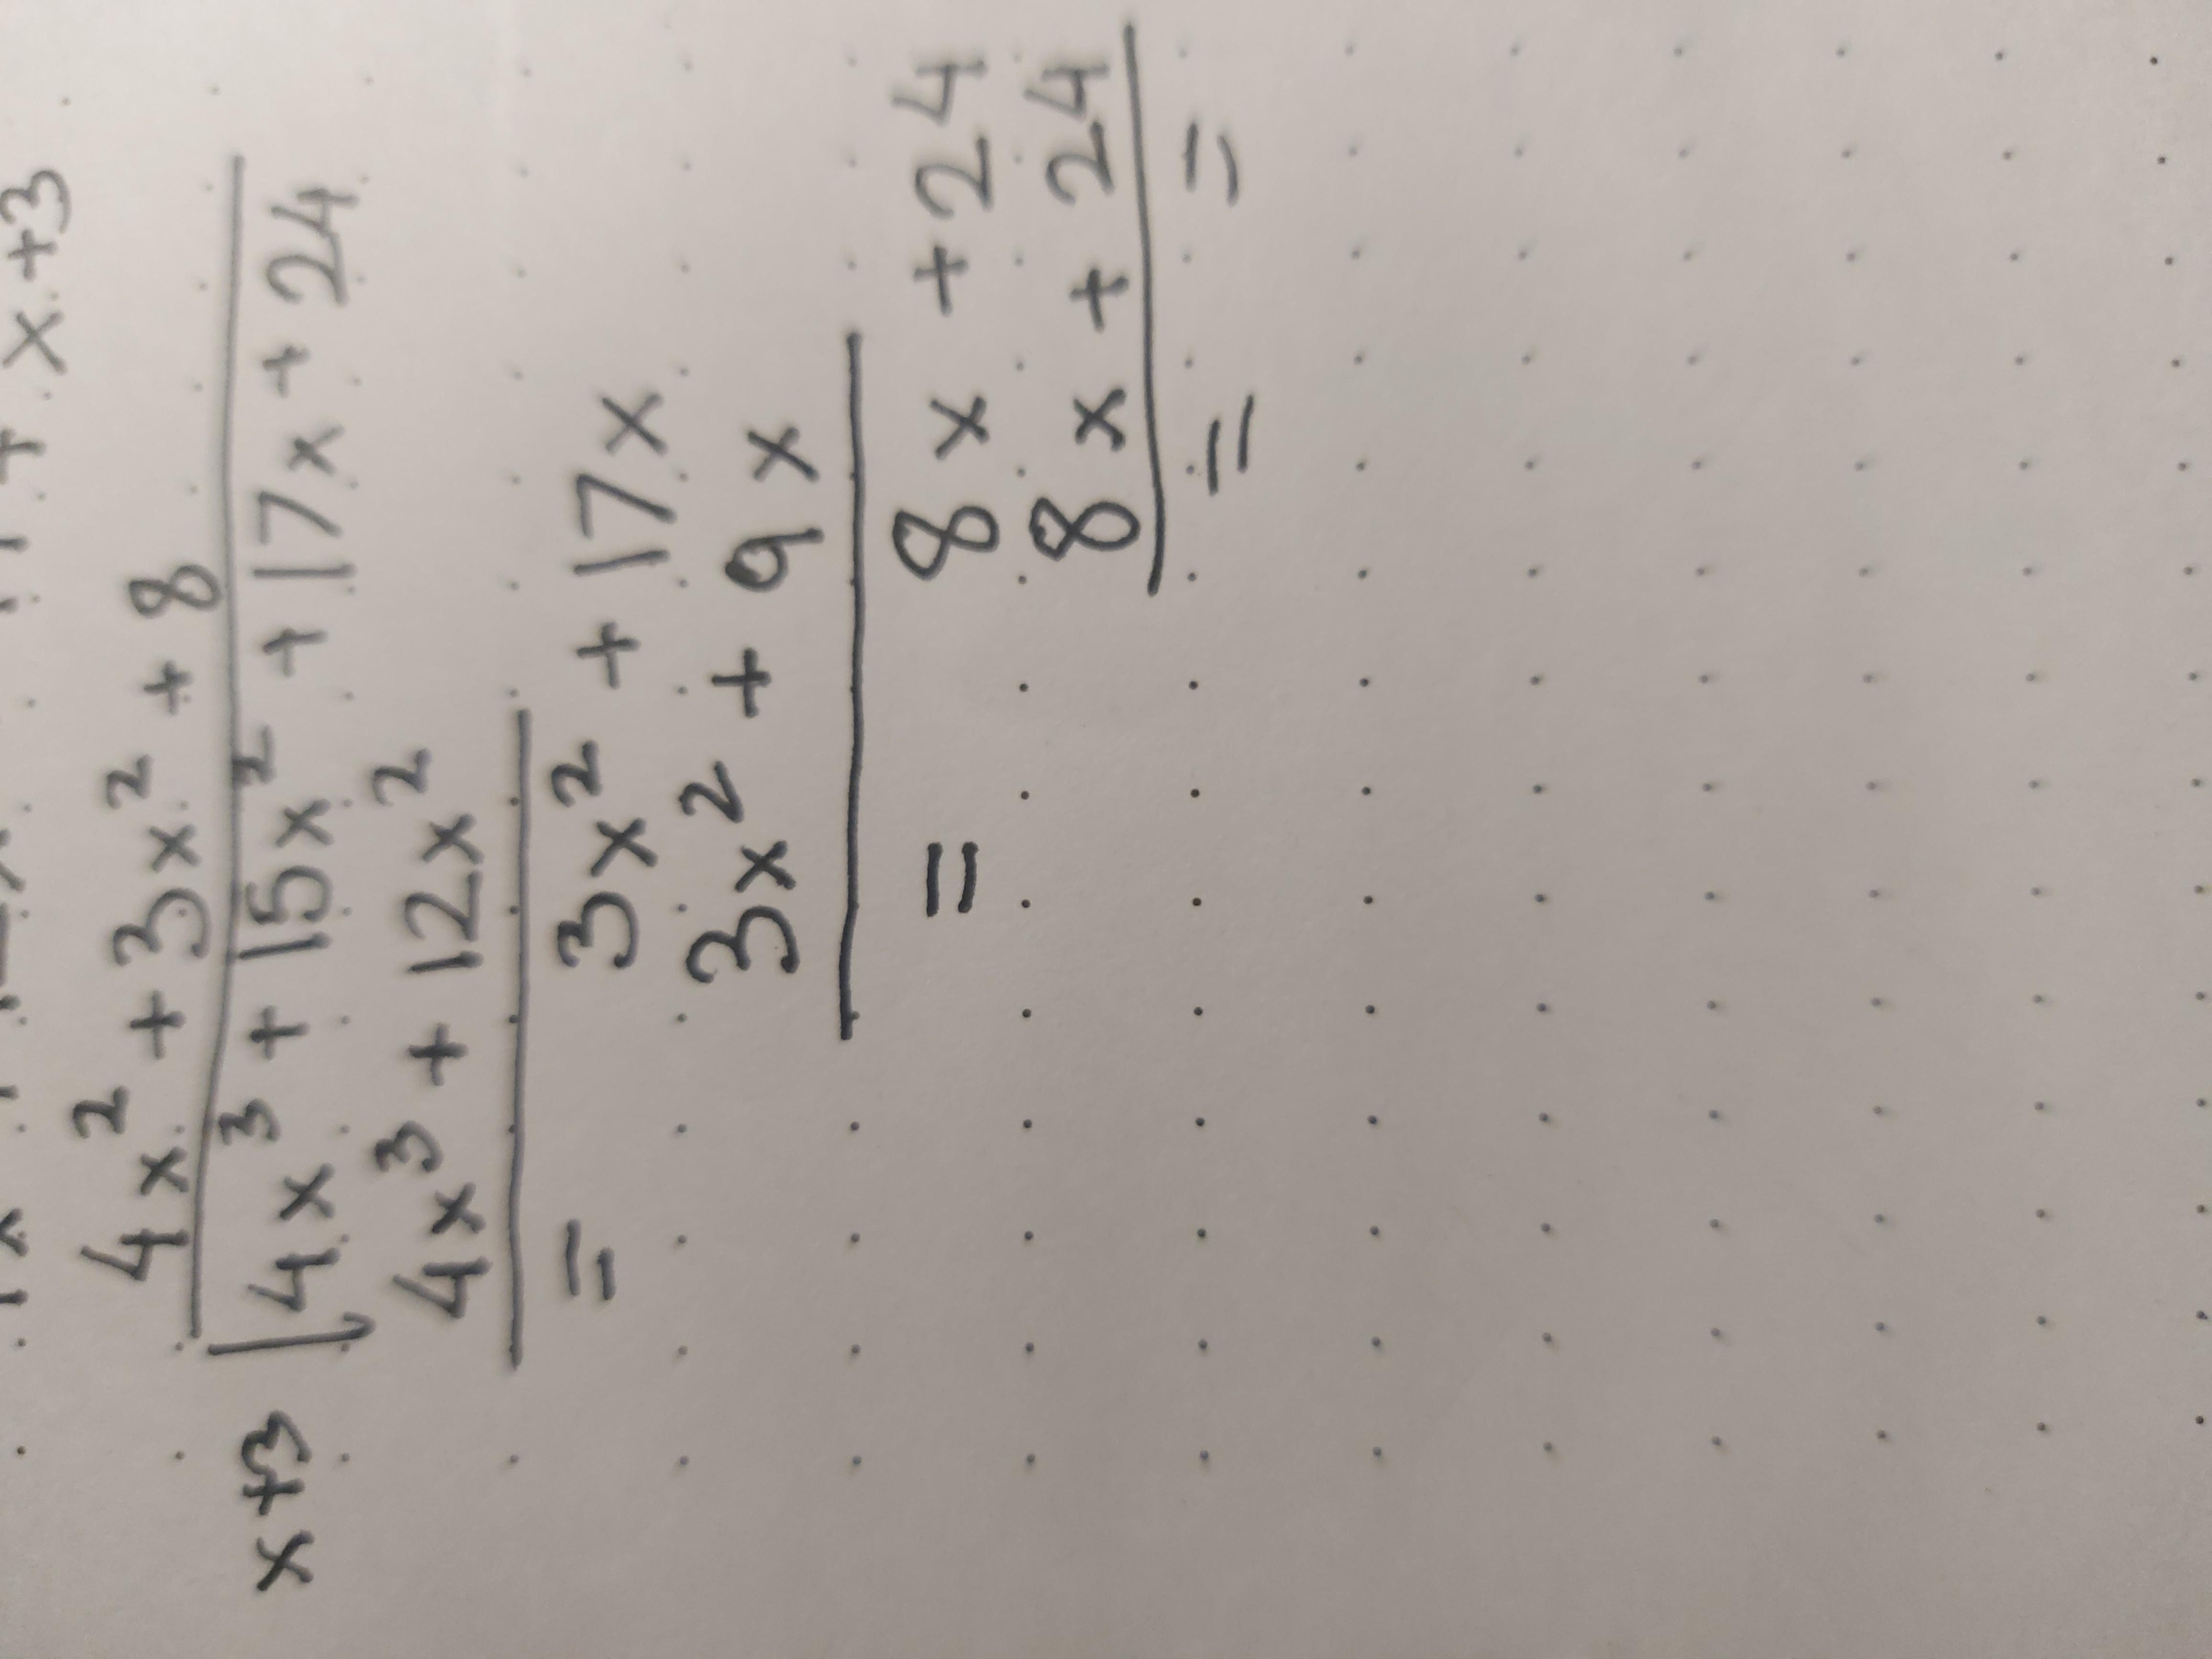 x+3
4x² + 3x² + 8
x+3 4x³ + 15x² + 17x + 24
4x³ + 12x²
= 3x² + 17x
3x² + 9x
= 8x + 24
8x + 24
= =